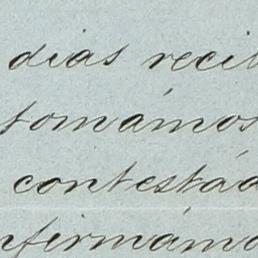 dias recib
tomámos
contestáa
nfirmámo